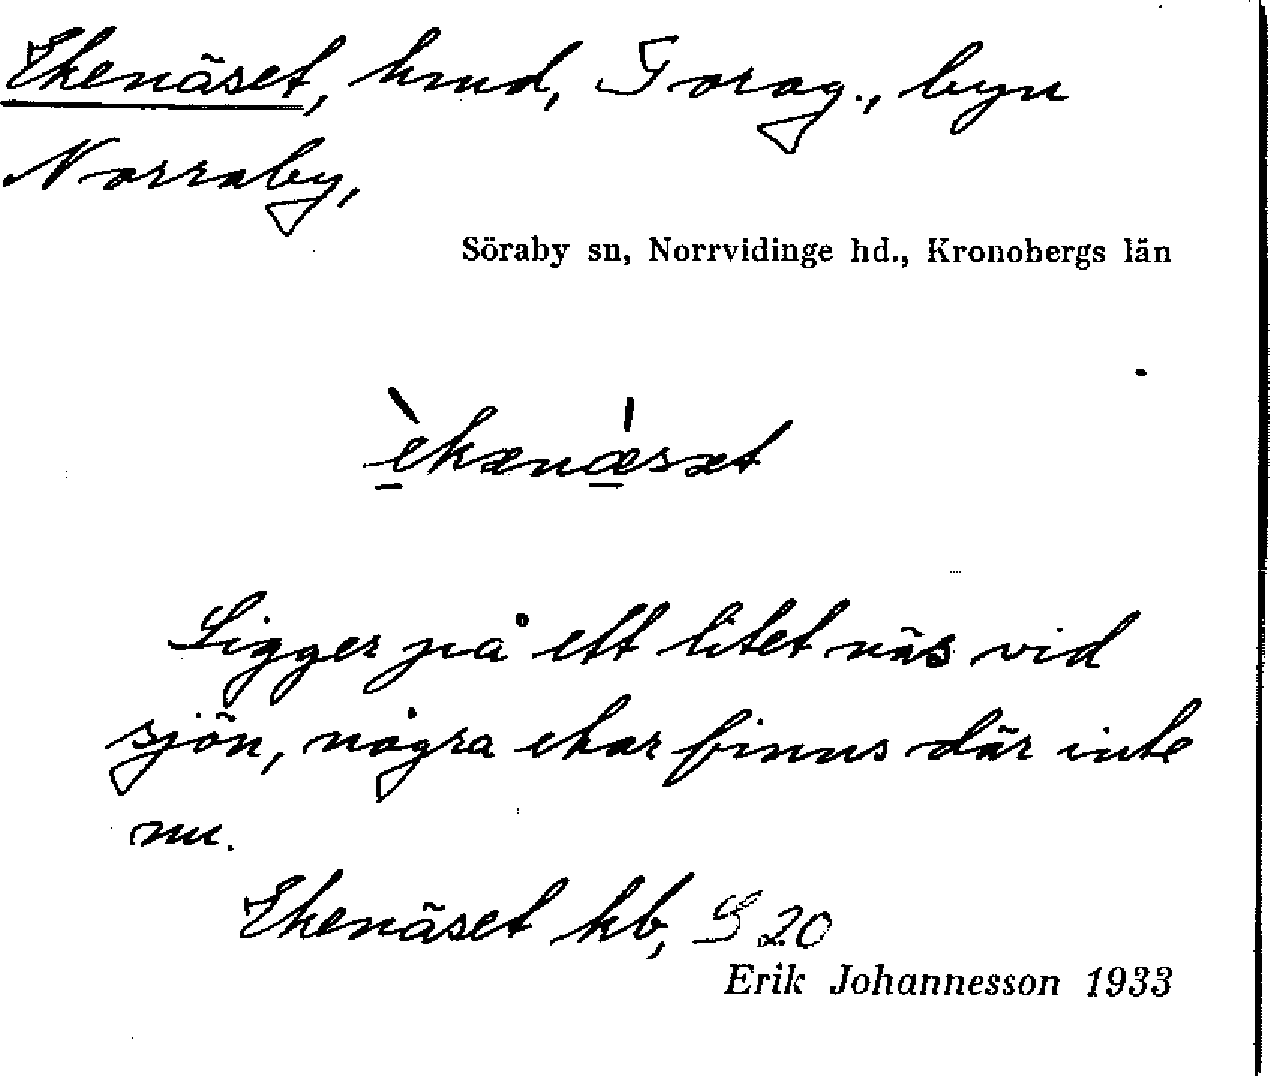 Ekenäset, hmd, Torag., byn
Norraby,
Söraby sn, Norrvidinge hd., Kronobergs län
èkænæ̍sæt
Ligger på ett litet näs vid
sjön, några ekar finns där inte
nu.
Ekenäset kb, S 20
Erik Johannesson 1933